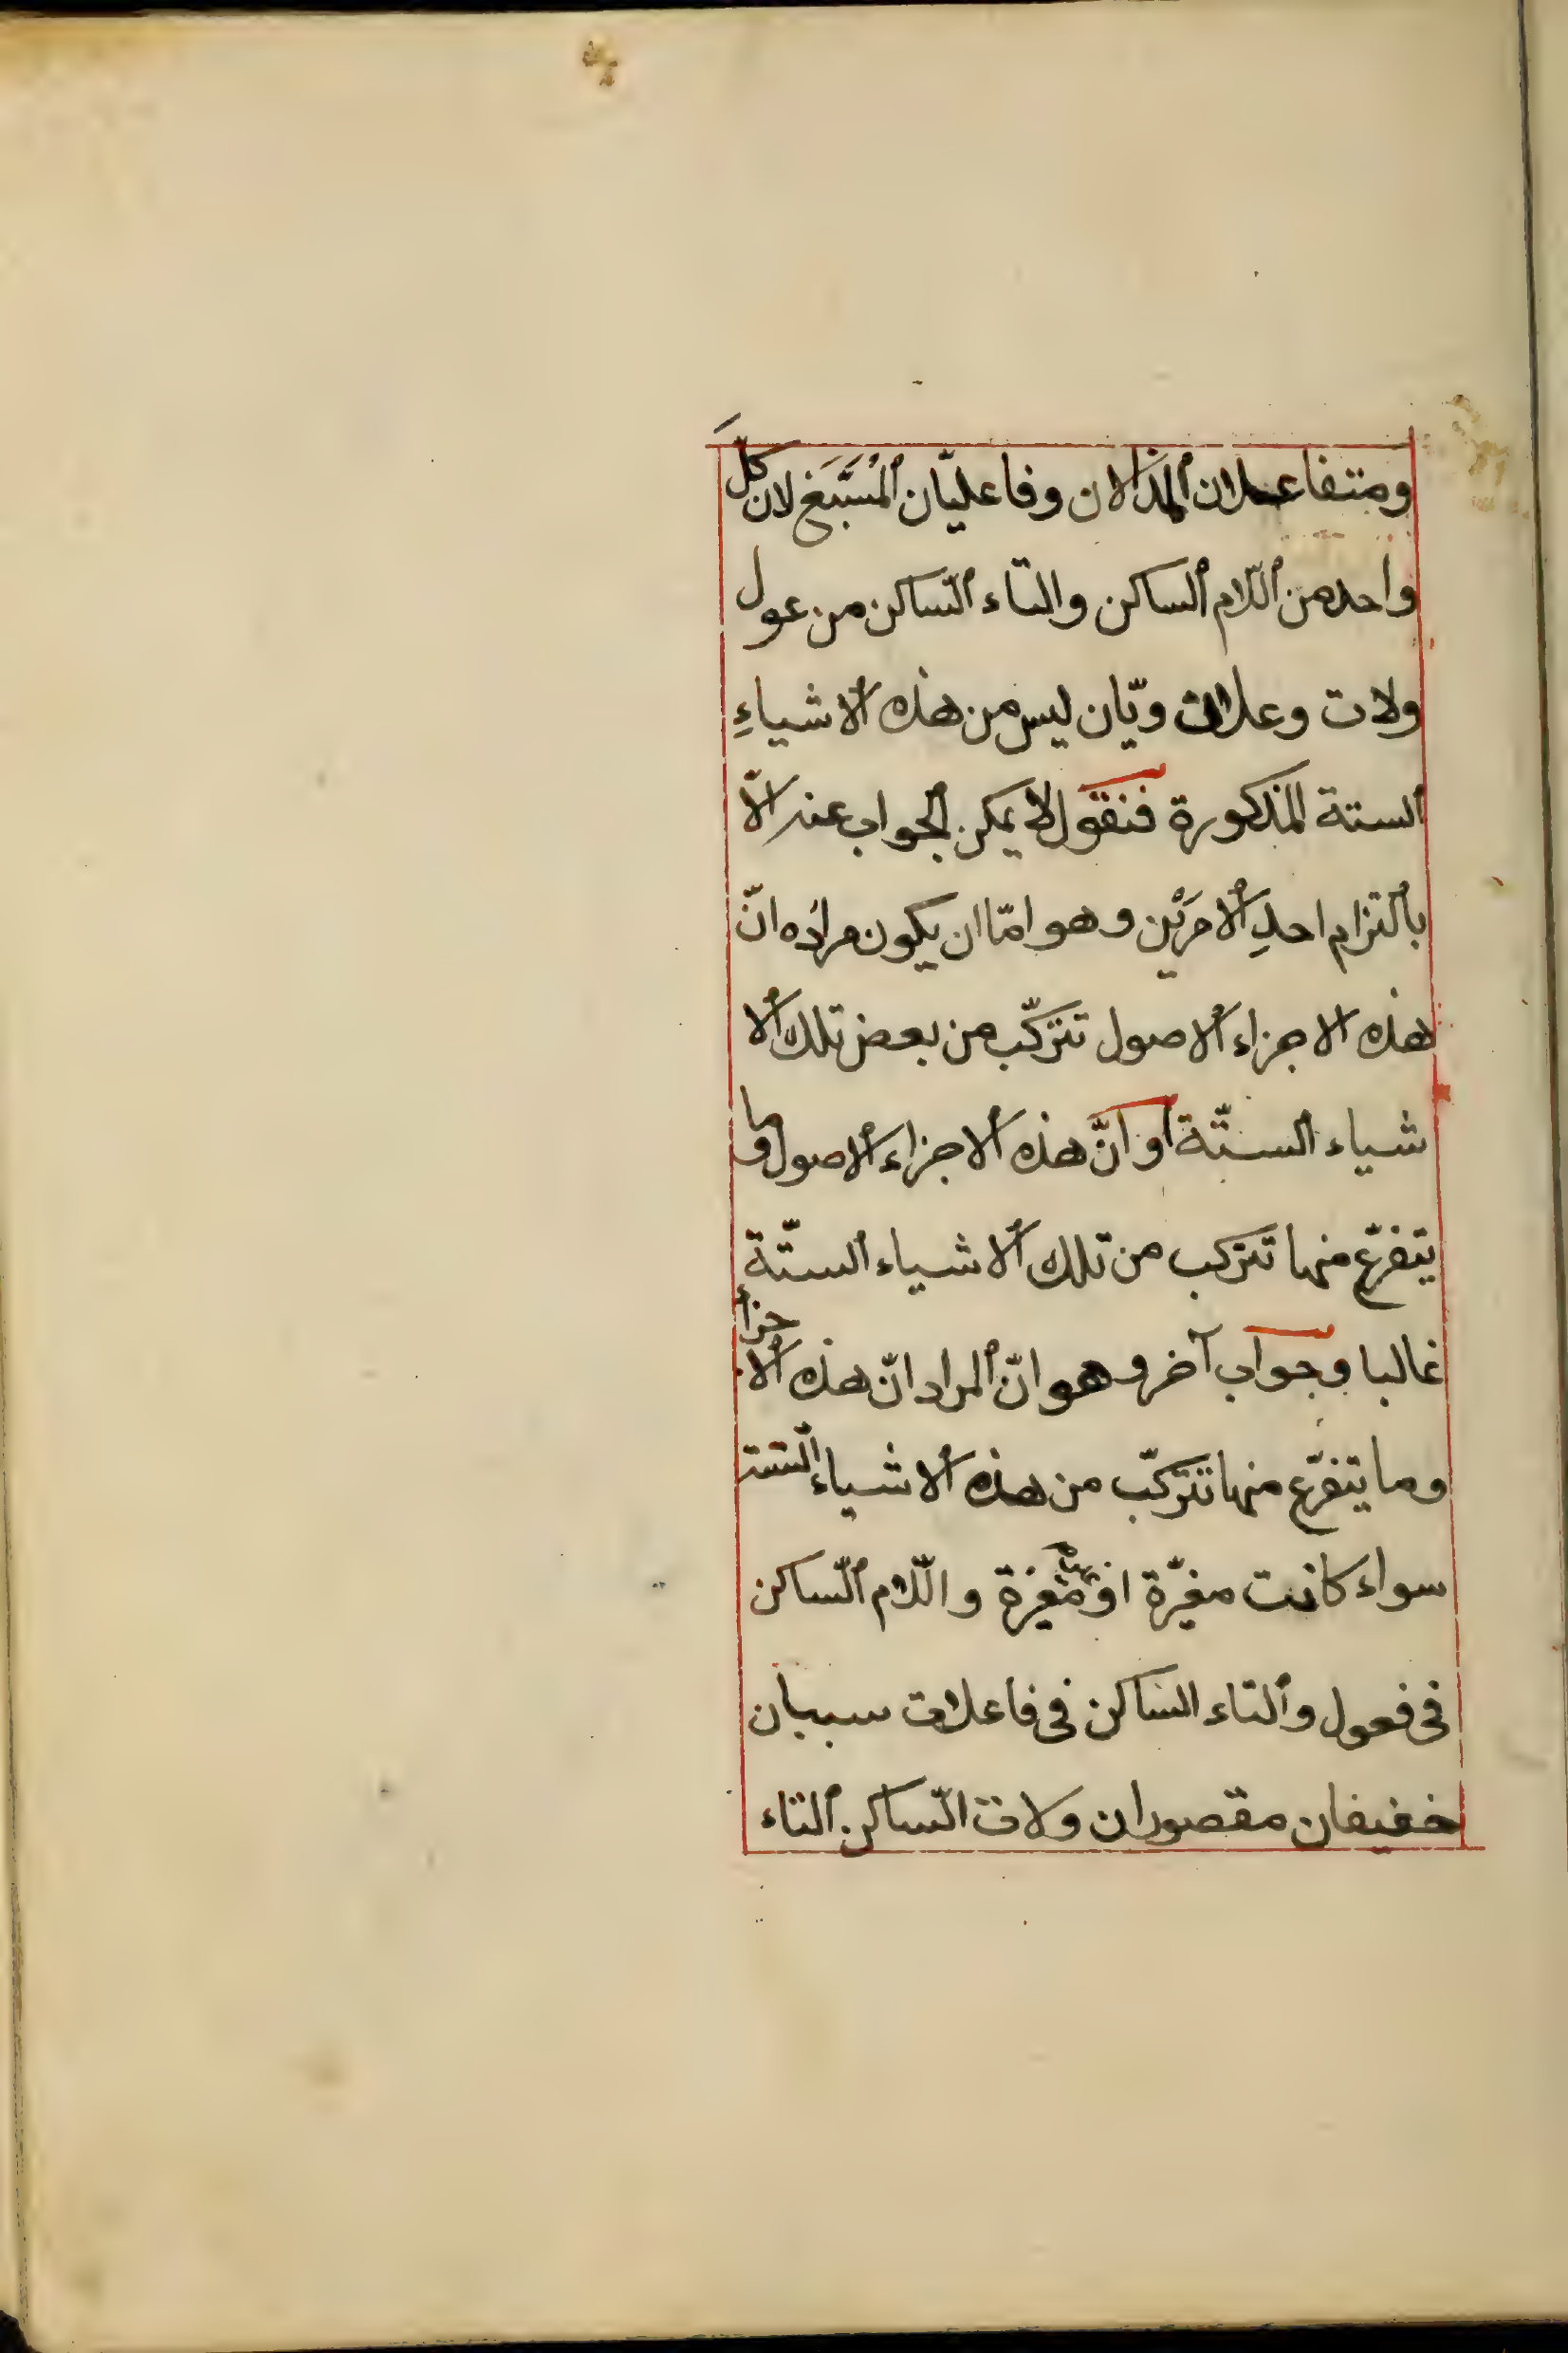 ومتفاعلان المذالان وفاعليّان المُسَبَّغ لان كلّ
واحد من اللّام الساكن والتاء السّاكن من عول
ولات وعلان ويّان ليس من هذه الاشياءِ
الستة المذكورة فنقول لا يمكن الجواب عنه الّا
بالتزام احدِ الامرَيْن وهو امّا ان يكون مرادُه انّ
هذه الاجزاء الاصول تتركّب من بعض تلك الا
شياء الستّة او انّ هذه الاجزاء الاصول وما
يتفرّع منها تتركب من تلك الاشياء الستّة
غالبا وجواب آخر وهو انّ المراد انّ هذه الاجزاء
وما يتفرّع منها تتركّب من هذه الاشياء الستّة
سواء كانت مغيّرة او مغيرة واللّام السّاكن
فى فعول والتاء الساكن فى فاعلات سببان
خفيفان مقصوران ولات السّاكن التاء